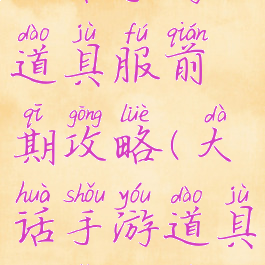 dào jù fú qián
道具服前
qī gōng lüè dà
期攻略(大
huà shǒu yóu dào jù
话手游道具